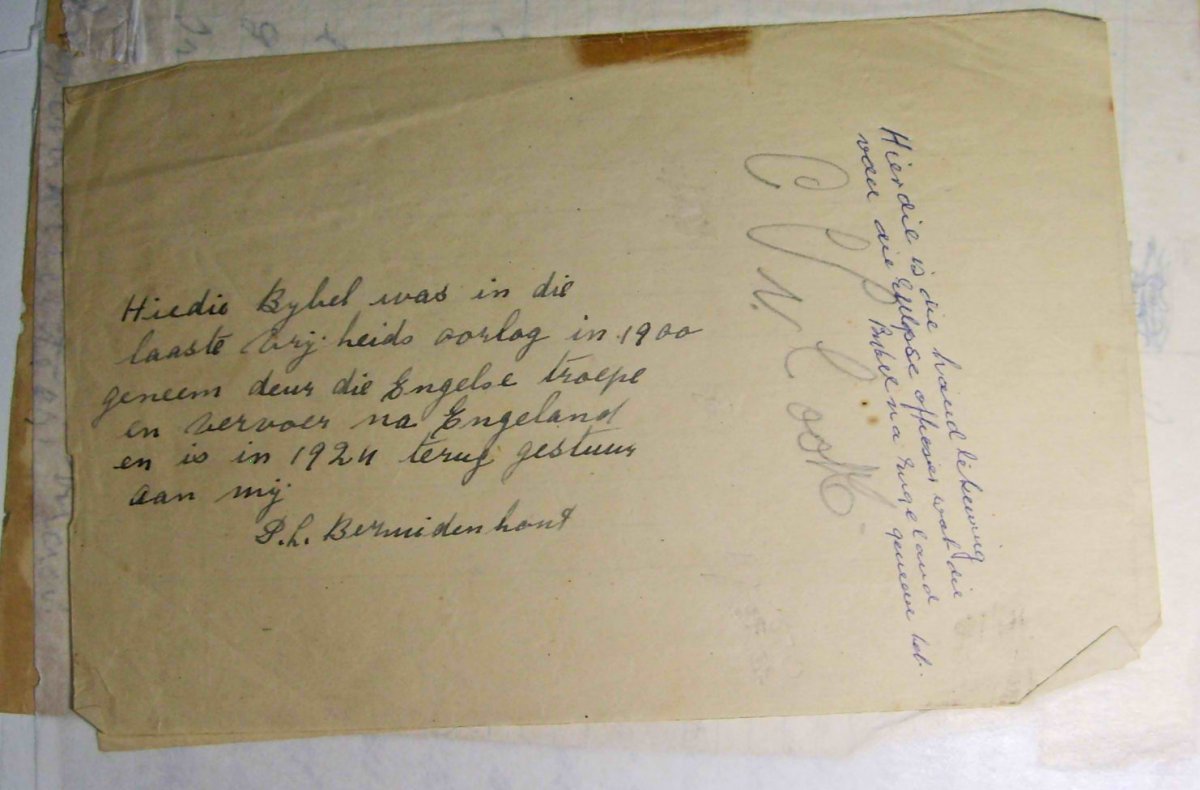 Hiedie Bybel was in die
laaste Vrij heids oorlog in 1900
geneem deur die Engelse troepe
en vervoer na Engeland
en is in 1924 terug gestuur
aan mij
P.L. Bernuidenhout
Hierdie is die hand tekening
van die Engelse offisier wat die
Bybel na Engeland geneem het.